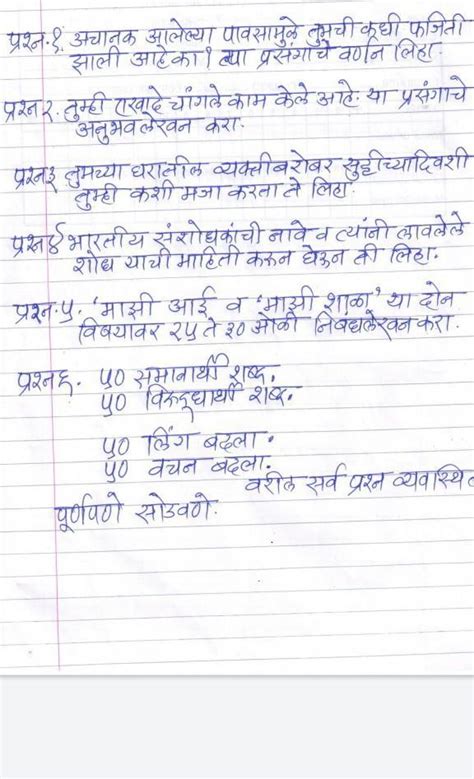 प्रश्न.१. अचानक आलेल्या पावसामुळे तुमची कधी फजिती
झाली आहे का? त्या प्रसंगाचे वर्णन लिहा.
प्रश्न २. तुम्ही एखादे चांगले काम केले आहे. या प्रसंगाचे
अनुभवलेखन करा.
प्रश्न३ तुमच्या घरातील व्यक्तीबरोबर सुट्टीच्यादिवशी
तुम्ही कशी मजा करता ते लिहा.
प्रश्न४ भारतीय संशोधकांची नावे व त्यांनी लावलेले
शोध याची माहिती करून घेऊन ती लिहा.
प्रश्न.५. 'माझी आई व 'माझी शाळा' या दोन
विषयावर २५ ते ३० ओळी निबंधलेखन करा.
प्रश्न६. ५० समानार्थी शब्द.
५० विरुद्धार्थी शब्द.
५० लिंग बदला.
५० वचन बदला.
वरील सर्व प्रश्न व्यवस्थित
पूर्णपणे सोडवणे.